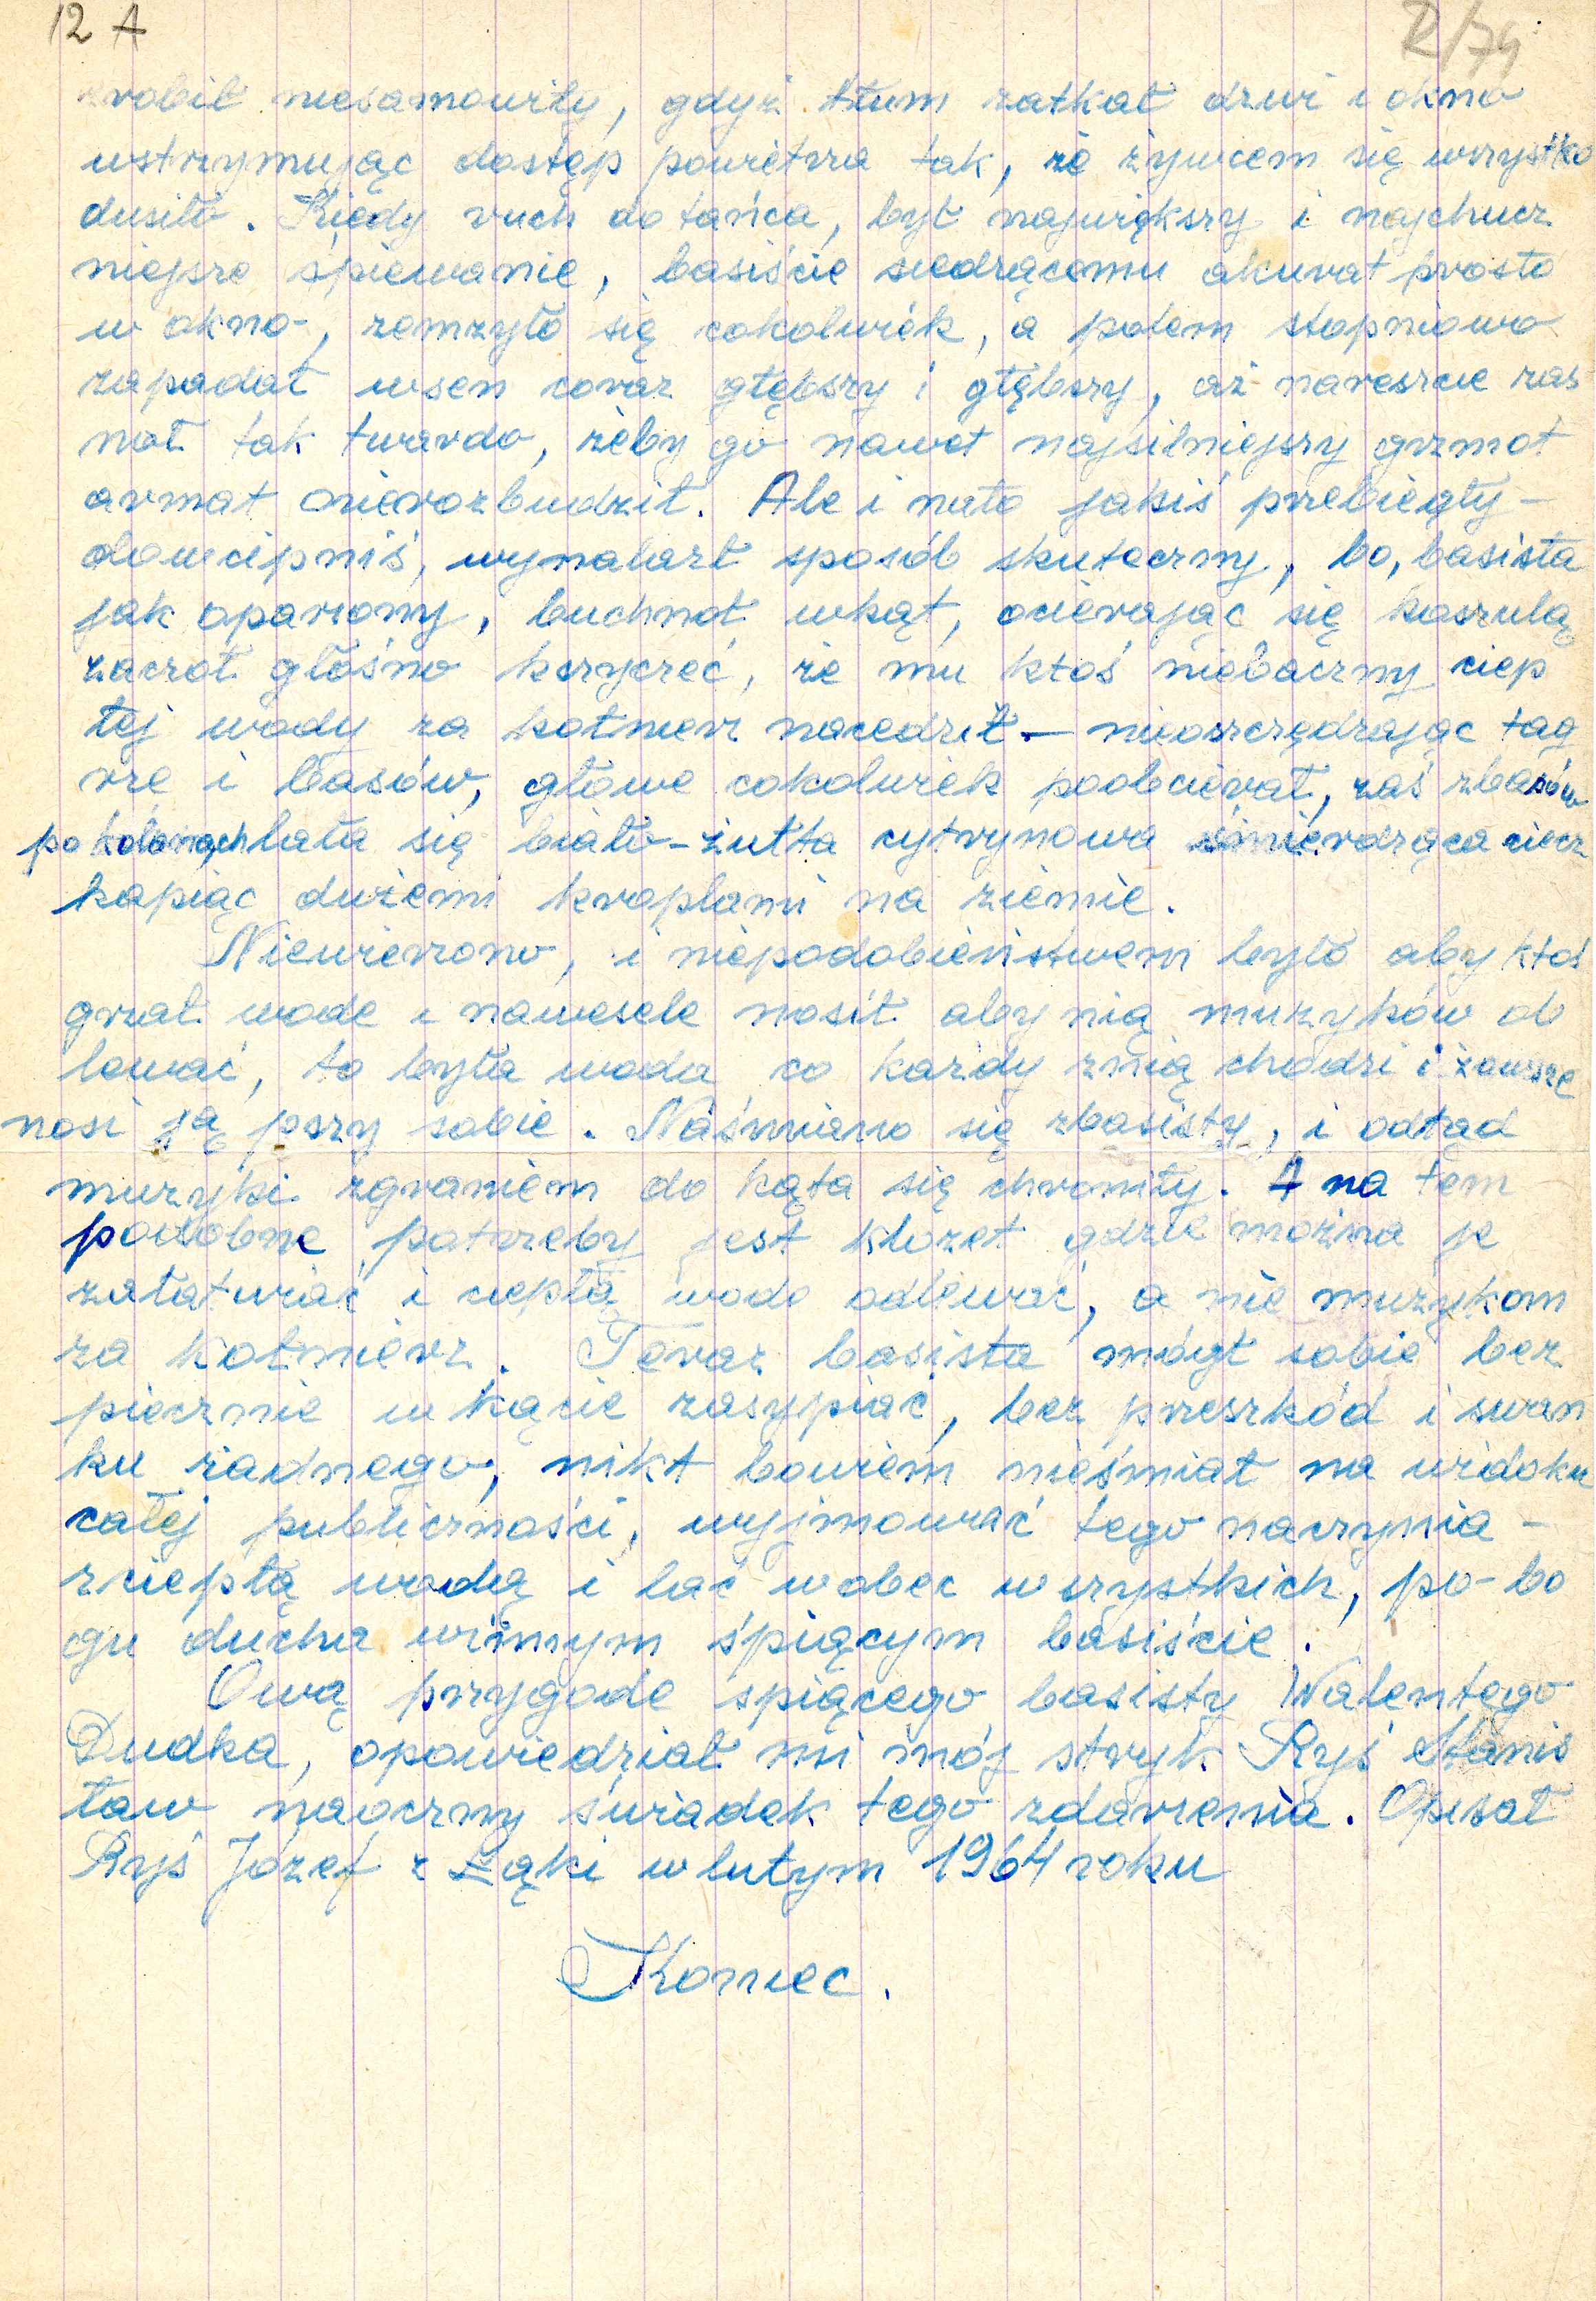 12 A
R/74
zrobił niesamowity, gdyż tłum zatkał drzwi i okno
wstrzymując dostęp powietrza tak, że żywcem się wszystko
dusiło. Kiedy ruch do tańca, był największy i najhucz
niejsze śpiewanie, basiście siedzącemu akurat prosto
w okno-, zemżyło się cokolwiek, a potem stopniowo
zapadał wsen coraz głębszy i głębszy, aż nareszcie zas
noł tak twardo, żeby go nawet najsilniejszy grzmot
armat nierozbudził. Ale i nato jakiś przebiegły-
dowcipniś, wynalazł sposób skuteczny, bo, basista
jak oparzony, buchnoł wkąt, ocierając się koszulą
zaczoł głośno krzyczeć, że mu ktoś niebaczny ciep
łej wody za kołnierz nacedził - nieoszczędzając tag
rze i basów, głowe cokolwiek poobcierał, zaś zbasów
po kolanach lała się biało-żułta cytrynowa śmierdząca ciecz
kapiąc dużemi kroplami na ziemie.
Niewierzono, i niepodobieństwem było aby ktoś
grzał wode i nawesele nosił aby nią muzyków ob
lewać, to była woda co każdy znią chodzi i zawsze
nosi ją przy sobie. Naśmiano się zbasisty, i odtąd
muzyki zgraniem do kąta się chroniły. A na tem
podobne potrzeby jest klozet gdzie można je
załatwiać i ciepłą wode odlewać, a nie muzykom
za kołnierz. Teraz basista mógł sobie bez
piecznie w kącie zasypiać, bez przeszkód i szwan
ku żadnego, nikt bowiem nieśmiał na widoku
całej publiczności, wyjmować tego naczynia-
zciepłą wodą i lać wobec wszystkich, po-bo
gu ducha winnym śpiącym basiście.
Ową przygode spiącego basisty Walentego
Dudka, opowiedział mi mój stryk Ryś Stanis
ław naoczny świadek tego zdarzenia. Opisał
Ryś Józef z Łąki w lutym 1964 roku
Koniec.